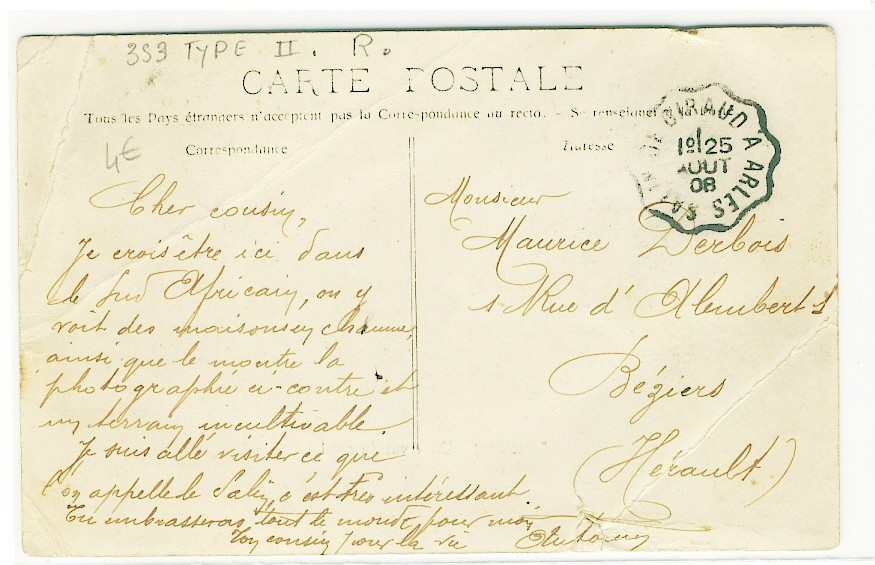 353 TYPE II. R.
CARTE POSTALE
Tous les Pays étrangers n'acceptent pas la Correspondance au recto. - Se renseigner à la Poste
4€
Correspondance
Cher cousin,
Je crois être ici dans
le Sud Africain, on y
voit des maisons en chaume,
ainsi que le montre la
photographie ci-contre et
un terrain incultivable.
Je suis allé visiter ce que
l'on appelle le Salin, c'est très intéressant
Tu embrasseras tout le monde pour moi
Ton cousin pour la vie Antony
Adresse
Monsieur
Maurice Derbois
1 Rue d'Alembert 1
Béziers
(Hérault)
GIRAUD A ARLES
25
AOUT
08